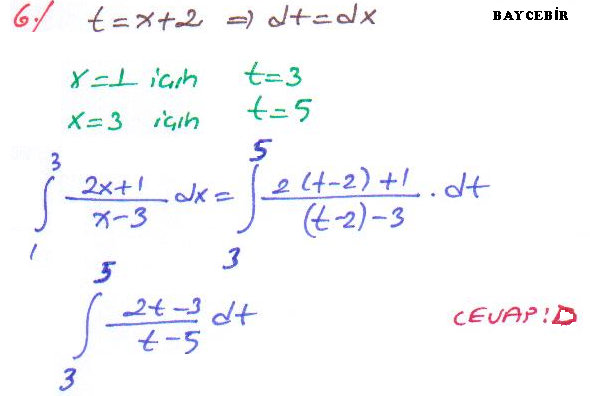 6./ t=x+2 ⇒ dt=dx BAYCEBİR
x=1 için t=3
x=3 için t=5
∫₁³ (2x+1)/(x-3) dx = ∫₃⁵ (2(t-2)+1)/((t-2)-3) . dt
∫₃⁵ (2t-3)/(t-5) dt CEVAP:D